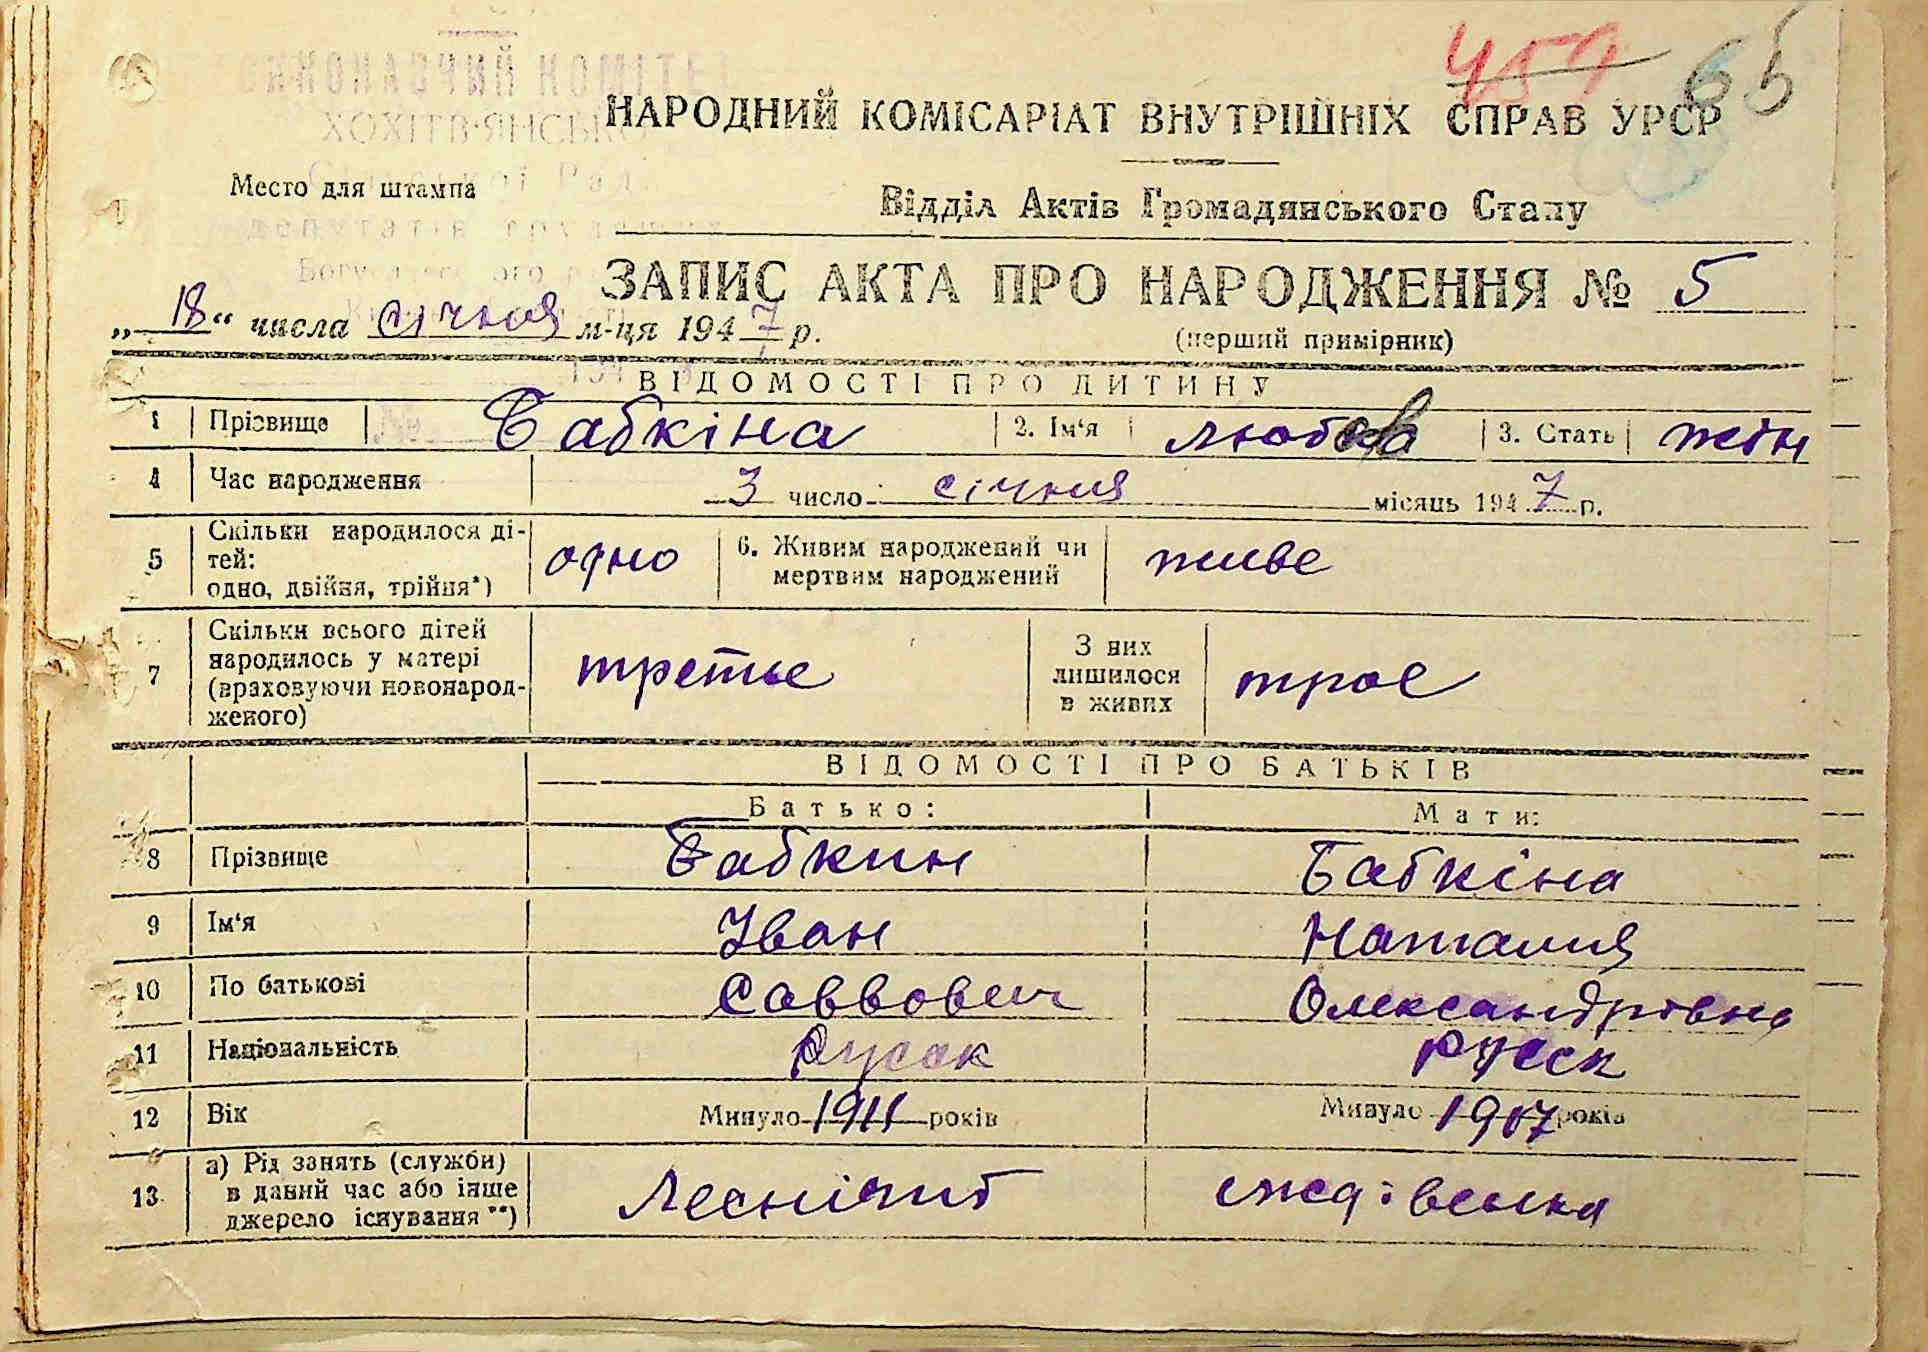 ВИКОНАВЧИЙ КОМІТЕТ
457 65
НАРОДНИЙ КОМІСАРІАТ ВНУТРІШНІХ СПРАВ УРСР
Место для штампа
Відділ Актів Громадянського Стану
ЗАПИС АКТА ПРО НАРОДЖЕННЯ № 5
„18“ числа січня м-ця 1947 р.
(перший примірник)
ВІДОМОСТІ ПРО ДИТИНУ
1 Прізвище Бабкіна 2. Ім'я Любов 3. Стать жін
4 Час народження 3 число січня місяць 1947 р.
5 Скільки народилося ді-
тей:
одно, двійня, трійня*) одно 6. Живим народжений чи
мертвим народжений живе
7 Скільки всього дітей
народилось у матері
(враховуючи новонарод-
женого) третье З них
лишилося
в живих трое
ВІДОМОСТІ ПРО БАТЬКІВ
Батько: Мати:
8 Прізвище Бабкин Бабкіна
9 Ім'я Іван Наталия
10 По батькові Саввович Олександрівна
11 Національність Русск Русск
12 Вік Минуло 1911 років Минуло 1907 років
13 а) Рід занять (служби)
в даний час або інше
джерело існування**) Леснічит